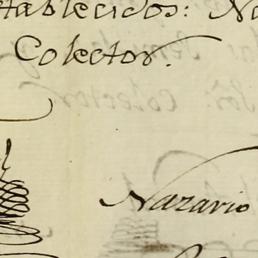 tablecidos: No
Colector.
Nazario